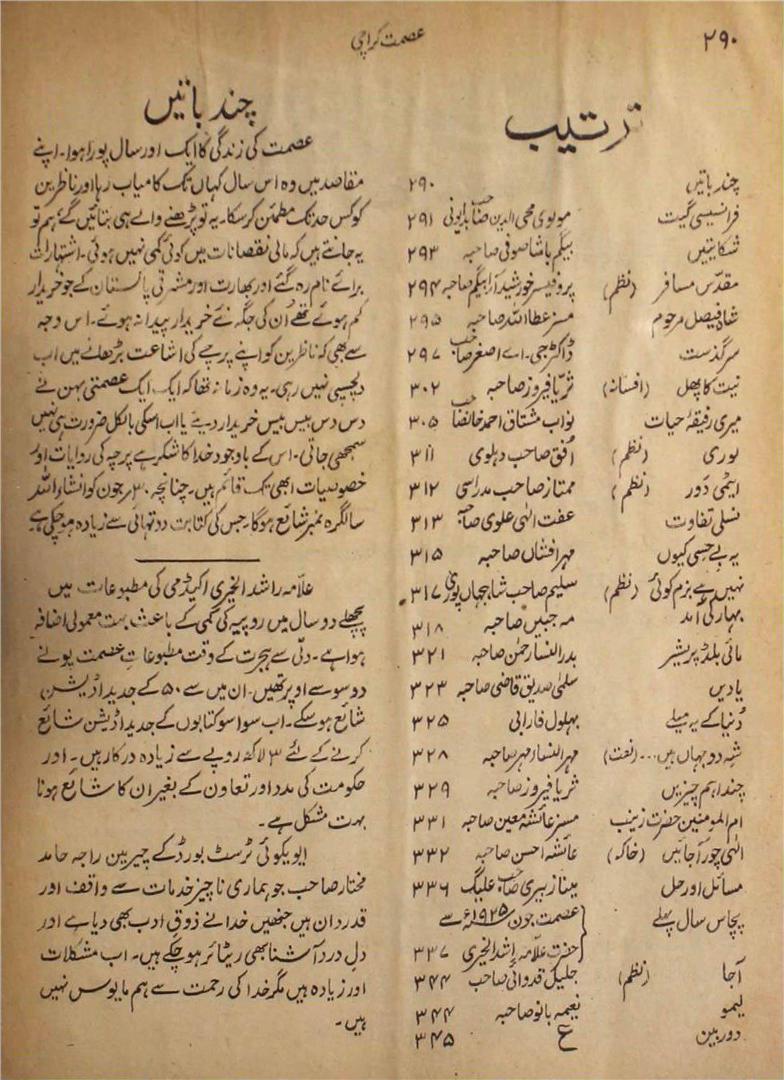 ۲۹۰
عصمت کراچی
ترتیب
چند باتیں ۲۹۰
فرانسیسی گیت مولوی محی الدین صاحب بدایونی ۲۹۱
شکایتیں بیگم پاشا صوفی صاحبہ ۲۹۳
مقدّس مسافر (نظم) پروفیسر خورشید آرا بیگم صاحبہ ۲۹۴
شاہ فیصل مرحوم مسز عطا اللہ صاحبہ ۲۹۵
سرگذست ڈاکٹر جی۔ اے اصغر صاحب ۲۹۷
نیت کا پھل (افسانہ) ثریا فیروز صاحبہ ۳۰۲
میری رفیقۂ حیات نواب مشتاق احمد خانصاحب ۳۰۵
لوری (نظم) اُفق صاحب دہلوی ۳۱۱
ایٹمی دَور (نظم) ممتاز صاحب مدراسی ۳۱۲
نسلی تفاوت عفت الٰہی علوی صاحبہ ۳۱۳
یہ بے حِسی کیوں مہر افشاں صاحبہ ۳۱۵
نہیں ہے بزم کوئی (نظم) سلیم صاحب شاہجہاں پوری ۳۱۷
بہار کی آمد مہ جبیں صاحبہ ۳۱۸
ہائی بلڈ پریشر بدر النسا رحمٰن صاحبہ ۳۲۱
یادیں سلمٰی صدیق قاضی صاحبہ ۳۲۳
دُنیا کے یہ میلے بہلول فارابی ۳۲۵
شہِ دو جہاں ہیں... (نعت) مہر النساء مہر صاحبہ ۳۲۸
چند اہم چیزیں ثریا فیروز صاحبہ ۳۲۹
ام المومنین حضرت زینب مسز عائشہ معین صاحبہ ۳۳۱
الٰہی چور آجائیں (خاکہ) عائشہ احسن صاحبہ ۳۳۲
مسائل اور حل مینا زبیری صاحبہ علیگ ۳۳۶
پچاس سال پہلے عصمت جون ۱۹۲۵ء سے
حضرت علامہ راشد الخیری ۳۳۷
آجا (نظم) جلیل قدوائی صاحب ۳۴۴
لیمو نعیمہ بانو صاحبہ ۳۴۴
دوربین ع ۳۴۵
چند باتیں
عصمت کی زندگی کا ایک اور سال پورا ہوا۔ اپنے
مقاصد میں وہ اس سال کہاں تک کامیاب رہا اور ناظرین
کو کس حد تک مطمئن کر سکا۔ یہ تو پڑھنے والے ہی بتائیں گے، ہم تو
یہ جانتے ہیں کہ مالی نقصانات میں کوئی کمی نہیں ہوئی۔ اشتہارات
برائے نام رہ گئے اور بھارت اور مشرقی پاکستان کے جو خریدار
کم ہوئے تھے اُن کی جگہ نئے خریدار پیدا نہ ہوئے۔ اس وجہ
سے بھی کہ ناظرین کو اپنے پرچے کی اشاعت بڑھانے میں اب
دلچسپی نہیں رہی۔ یہ وہ زمانہ تھا کہ ایک ایک عصمتی بہن نے
دس دس بیس بیس خریدار دیئے یا اب اسکی بالکل ضرورت ہی نہیں
سمجھی جاتی۔ اس کے باوجود خدا کا شکر ہے پرچہ کی روایات اور
خصوصیات ابھی تک قائم ہیں۔ چنانچہ ۳۰ جون کو انشاء اللہ
سالگرہ نمبر شائع ہوگا۔ جس کی کتابت دو تہائی سے زیادہ ہو چکی ہے
علاّمہ راشد الخیری اکیڈمی کی مطبوعات میں
پچھلے دو سال میں روپیہ کی کمی کے باعث بہت معمولی اضافہ
ہوا ہے۔ دلّی سے ہجرت کے وقت مطبوعاتِ عصمت پونے
دو سو سے اوپر تھیں۔ ان میں سے ۵۰ کے جدید اڈیشن
شائع ہو سکے۔ اب سوا سو کتابوں کے جدید اڈیشن شائع
کرنے کے لئے ۳ لاکھ روپے سے زیادہ درکار ہیں۔ اور
حکومت کی مدد اور تعاون کے بغیر ان کا شائع ہونا
بہت مشکل ہے۔
ایویکوئی ٹرسٹ بورڈ کے چیرمین راجہ حامد
مختار صاحب جو ہماری ناچیز خدمات سے واقف اور
قدر دان ہیں جنھیں خدا نے ذوقِ ادب بھی دیا ہے اور
دلِ درد آشنا بھی ریٹائر ہو چکے ہیں۔ اب مشکلات
اور زیادہ ہیں مگر خدا کی رحمت سے ہم مایوس نہیں
ہیں۔